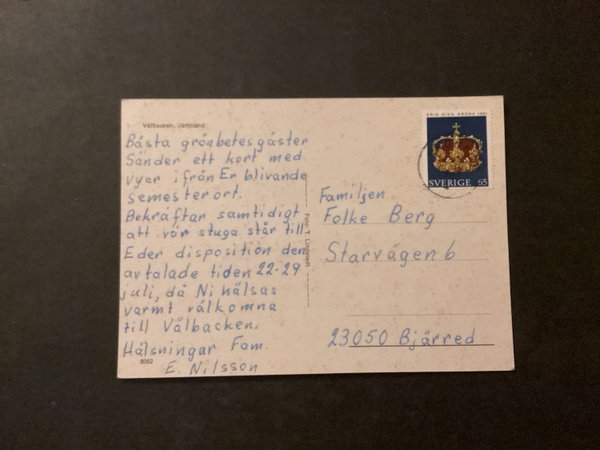 Vålbacken, Jämtland
Bästa grönbetesgäster
Sänder ett kort med
vyer ifrån Er blivande
semesterort.
Bekräftar samtidigt
att vår stuga står till
Eder disposition den
avtalade tiden 22-29
juli, då Ni hälsas
varmt välkomna
till Vålbacken.
Hälsningar Fam.
E. Nilsson
8062
Foto: T. Lindqvist
ERIK XIVs KRONA 1561
SVERIGE 65
Familjen
Folke Berg
Starvägen 6
23050 Bjärred